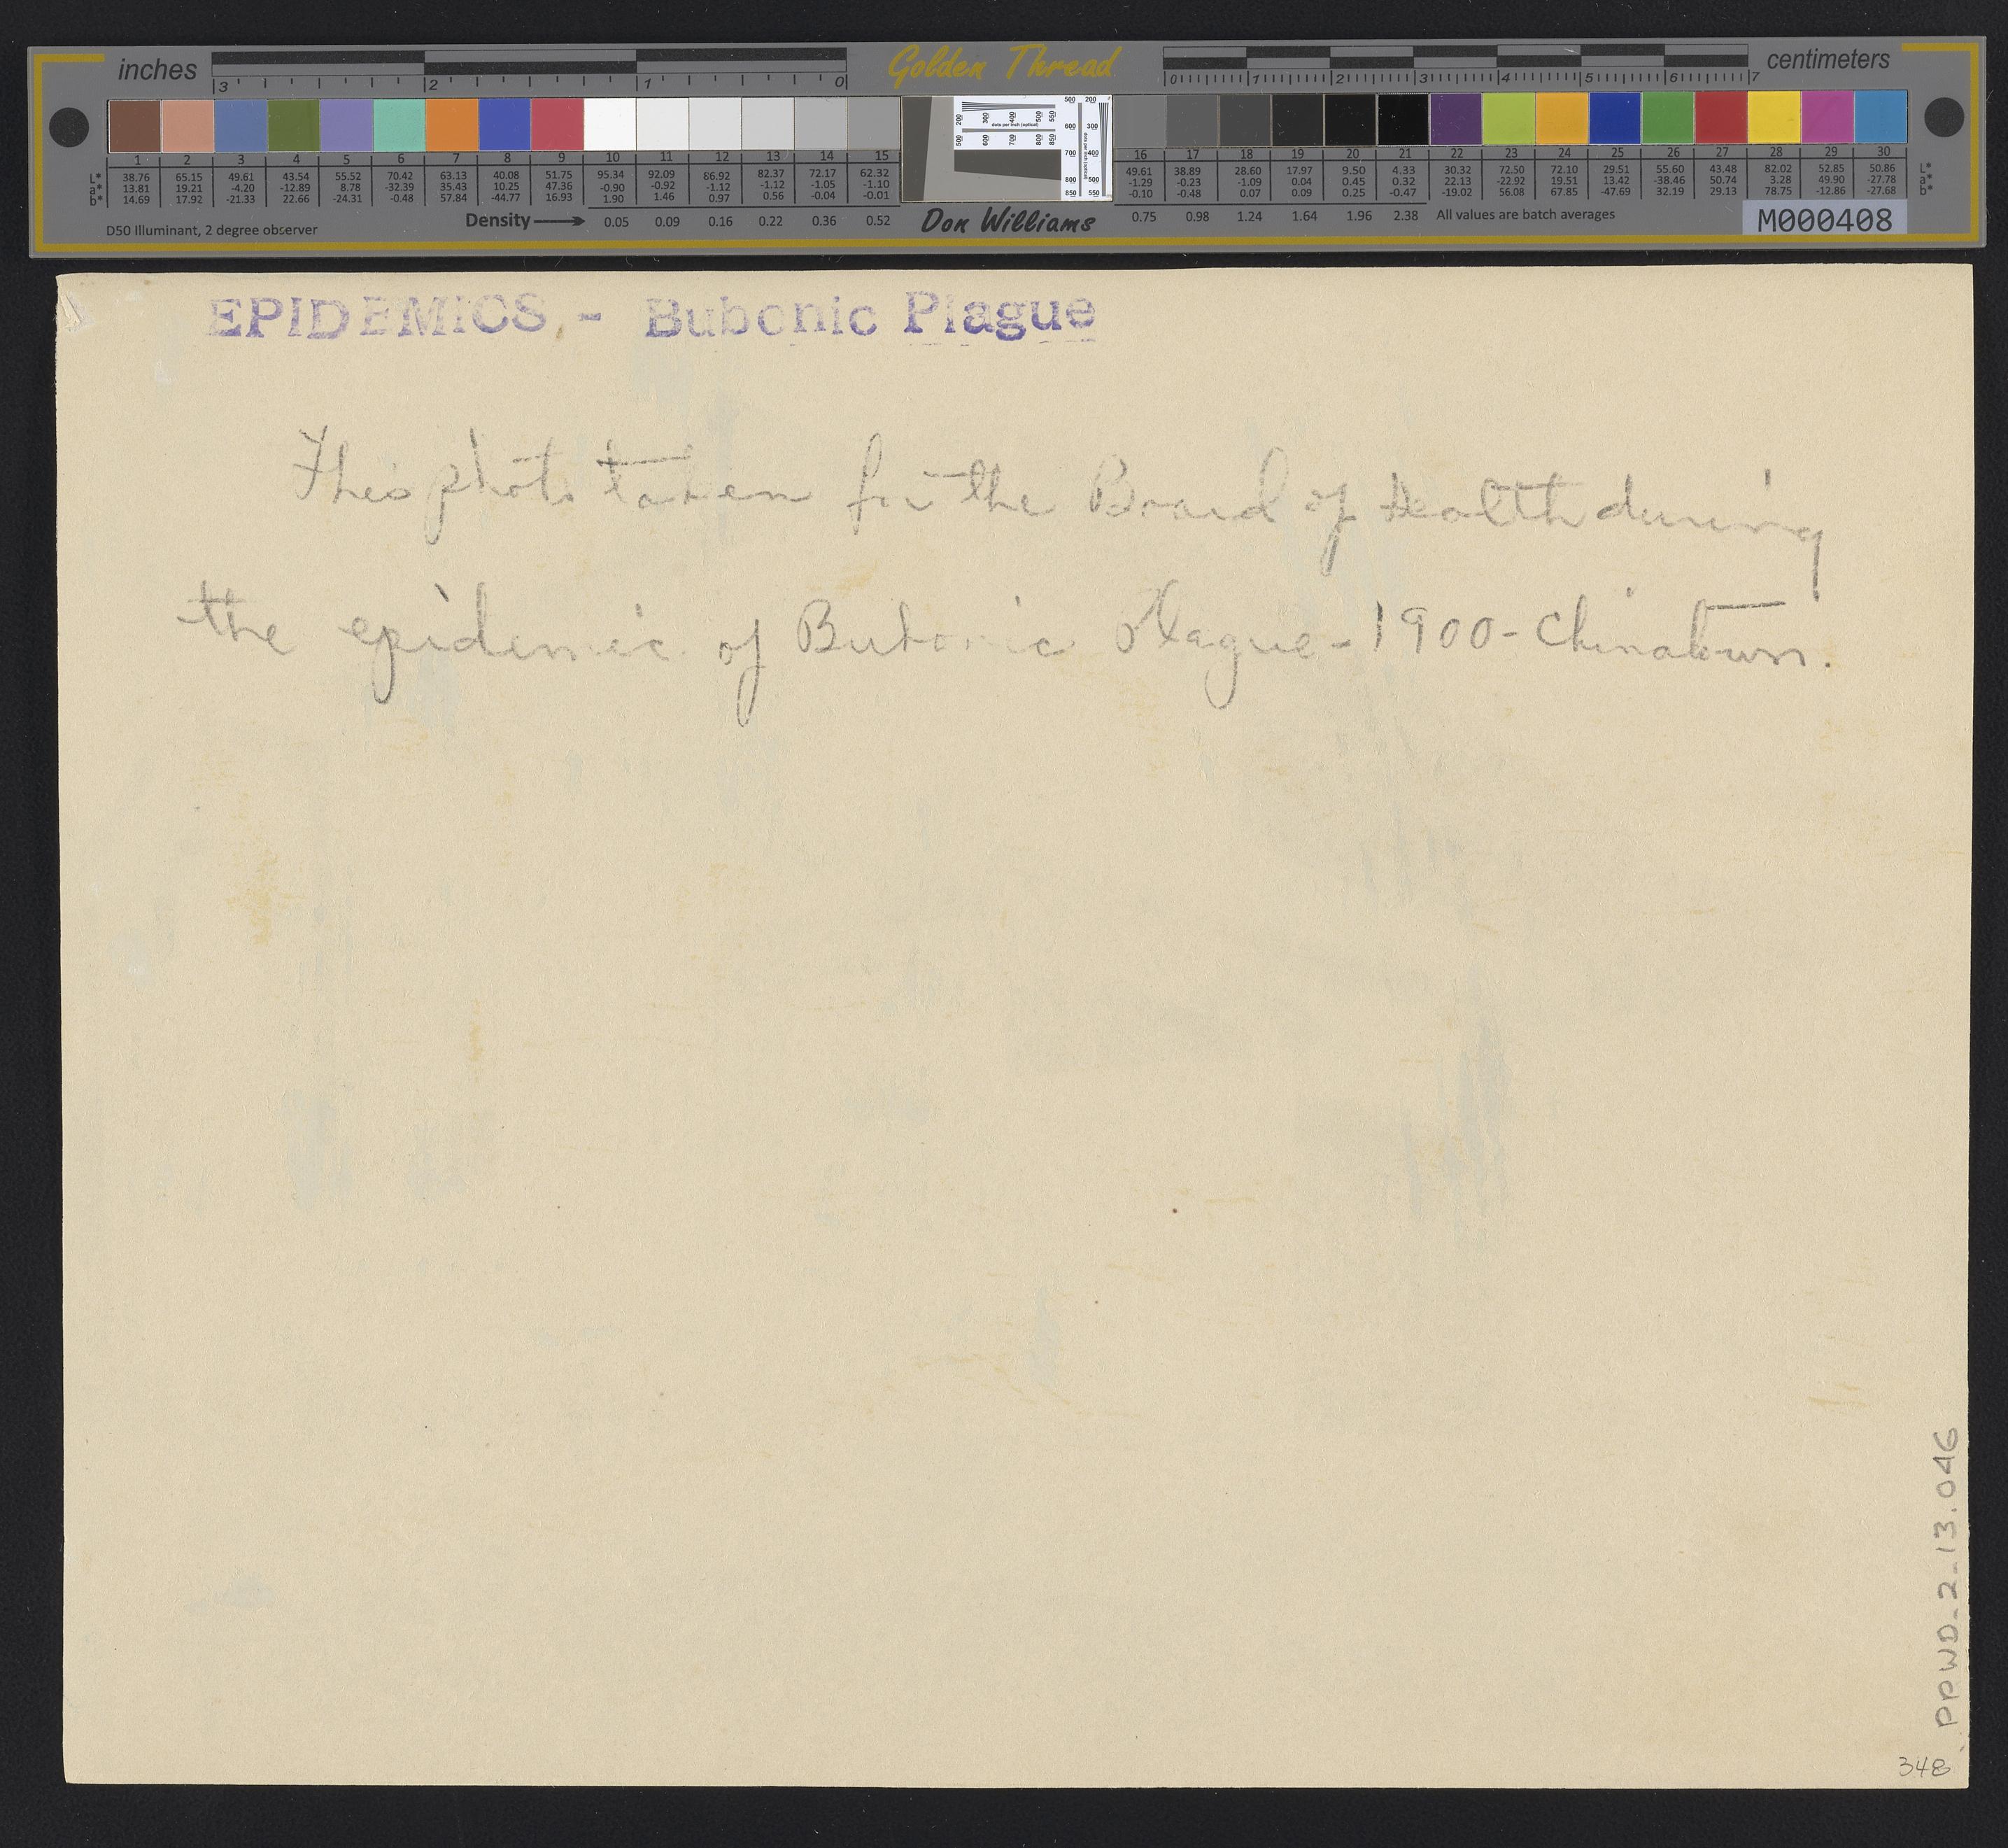 inches
3 2 1 0
Golden Thread
0 1 2 3 4 5 6 7
centimeters
1 2 3 4 5 6 7 8 9 10 11 12 13 14 15
L* 38.76 65.15 49.61 43.54 55.52 70.42 63.13 40.08 51.75 95.34 92.09 86.92 82.37 72.17 62.32
a* 13.81 19.21 -4.20 -12.89 8.78 -32.39 35.43 10.25 47.36 -0.90 -0.92 -1.12 -1.12 -1.05 -1.10
b* 14.69 17.92 -21.33 22.66 -24.31 -0.48 57.84 -44.77 16.93 1.90 1.46 0.97 0.56 -0.04 -0.01
16 17 18 19 20 21 22 23 24 25 26 27 28 29 30
49.61 38.89 28.60 17.97 9.50 4.33 30.32 72.50 72.10 29.51 55.60 43.48 82.02 52.85 50.86 L*
-1.29 -0.23 -1.09 0.04 0.45 0.32 22.13 -22.92 19.51 13.42 -38.46 50.74 3.28 49.90 -27.78 a*
-0.10 -0.48 0.07 0.09 0.25 -0.47 -19.02 56.08 67.85 -47.69 32.19 29.13 78.75 -12.86 -27.68 b*
D50 Illuminant, 2 degree observer
Density 0.05 0.09 0.16 0.22 0.36 0.52
Don Williams
0.75 0.98 1.24 1.64 1.96 2.38 All values are batch averages
M000408
EPIDEMICS - Bubonic Plague
This photo taken for the Board of Health during
the epidemic of Bubonic Plague - 1900 - Chinatown.
PPWD_2_13.046
348